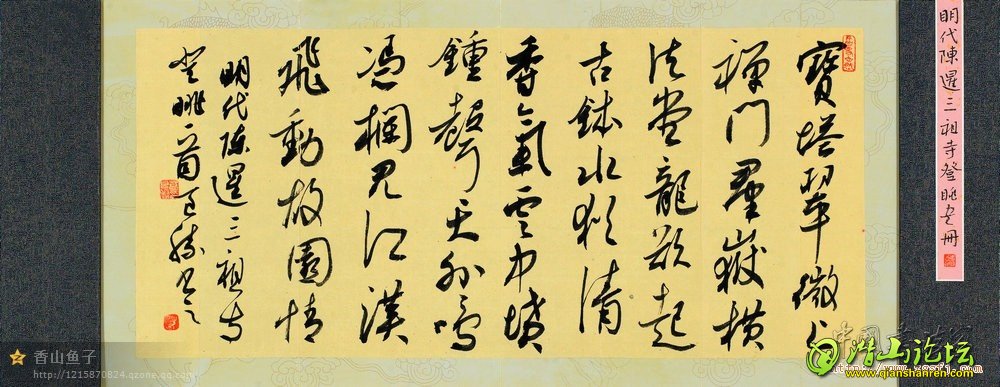 明代陳暹三祖寺登眺書冊
寶塔翠微上
禪門羣嶽橫
法堂龍欲起
古鉢水猶清
香氣雲中
鍾聲天外鳴
憑欄見江漢
飛動故園情
明代陳暹三祖寺
登眺一首
香山鱼子
http://1215870824.qzone.qq.com
潜山论坛
www.qianshanren.com